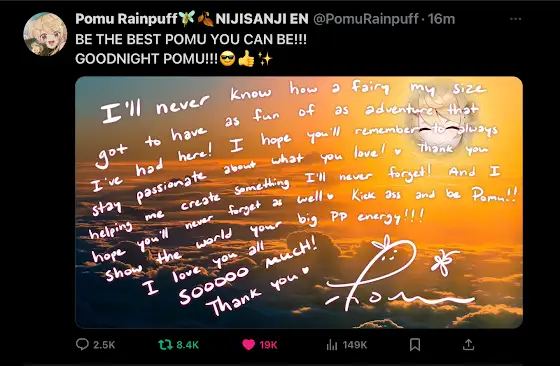 Pomu Rainpuff🧚🍂NIJISANJI EN @PomuRainpuff · 16m
BE THE BEST POMU YOU CAN BE!!!
GOODNIGHT POMU!!!😎👍✨
I'll never know how a fairy my size
got to have as fun of as adventure that
I've had here! I hope you'll remember to always
stay passionate about what you love! ♥ Thank you
helping me create something I'll never forget! And I
hope you'll never forget as well ♥ Kick ass and be Pomu!!
Show the world your big PP energy!!!
I love you all
SOOOOO much!
Thank you ♥
Pomu
2.5K 8.4K 19K 149K